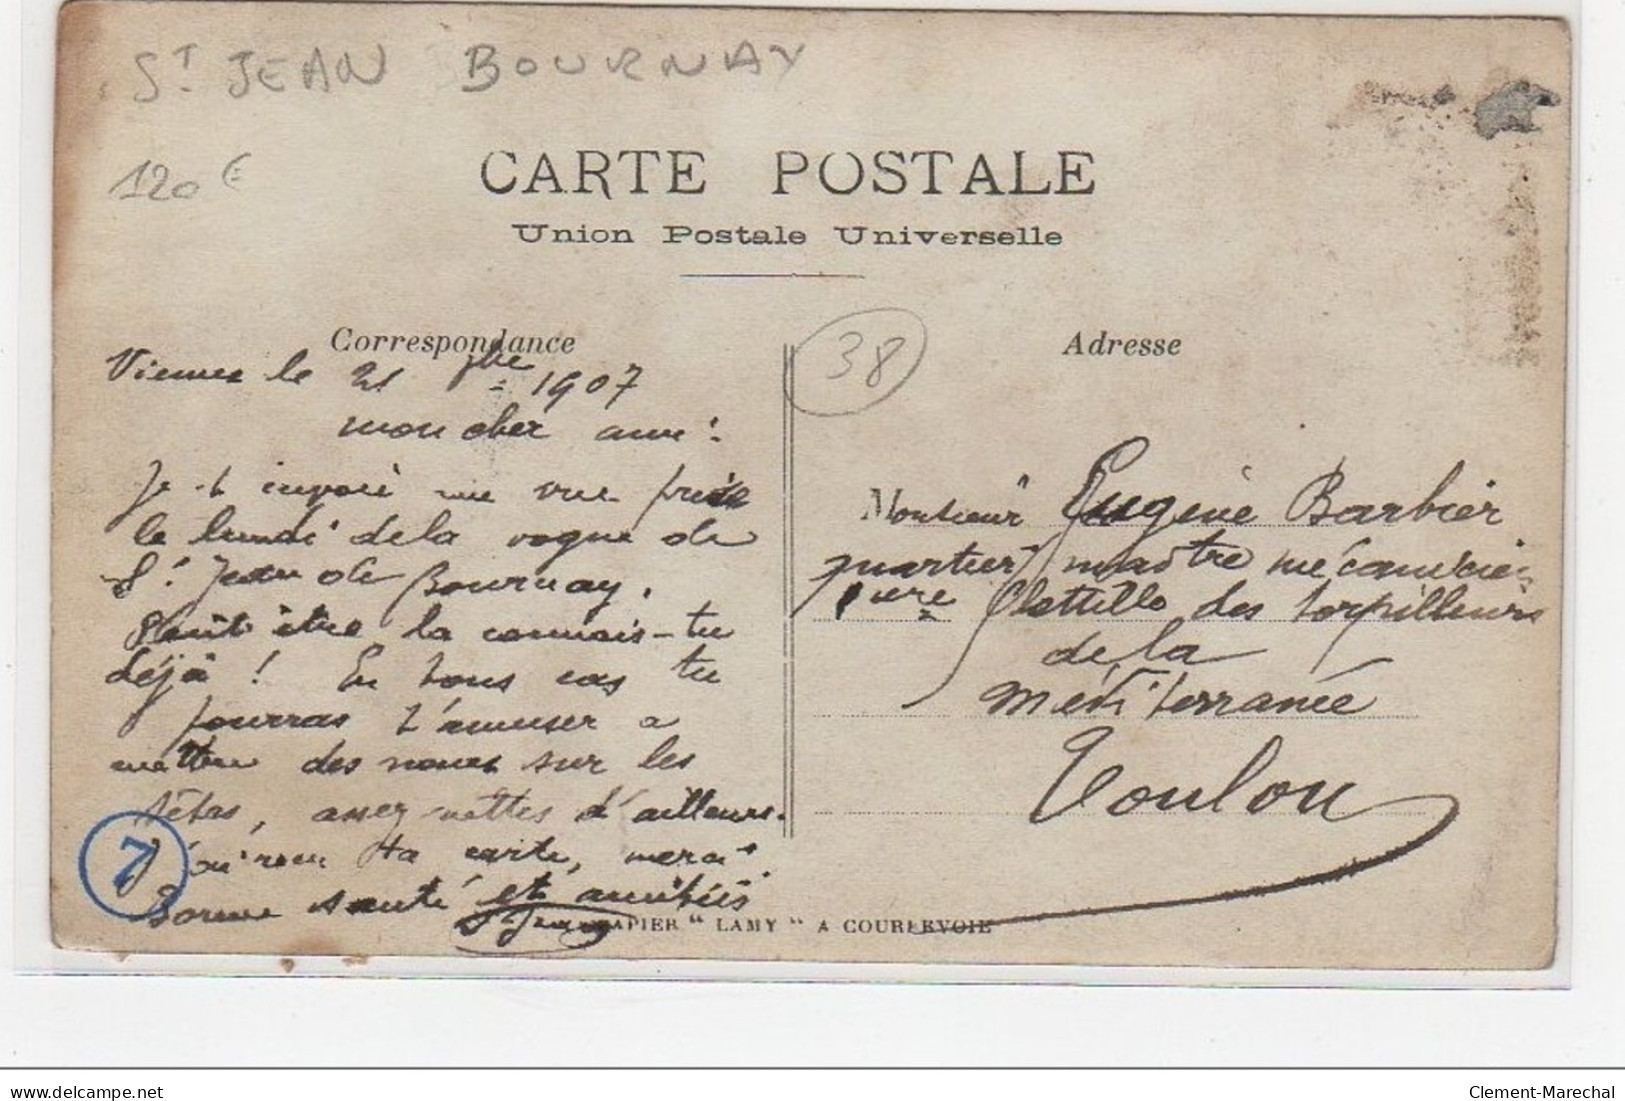 ST JEAN BOURNAY
120 €
CARTE POSTALE
Union Postale Universelle
Correspondance
Vienne le 21 bre 1907
mon cher ami :
Je t'envoie une vue prise
le lundi de la vogue de
St Jean de Bournay.
Peut être la connais-tu
déjà ! En tous cas tu
pourras t'amuser a
mettre des noms sur les
têtes, assez nettes d'ailleurs.
J'ai reçu ta carte, merci.
Bonne santé et amitiés
7
38
Adresse
Monsieur Eugène Barbier
quartier maître mécanicien
1ere flottille des torpilleurs
de la
Méditerranée
Toulon
PAPIER "LAMY" A COURBEVOIE
www.delcampe.net
Clement-Marechal